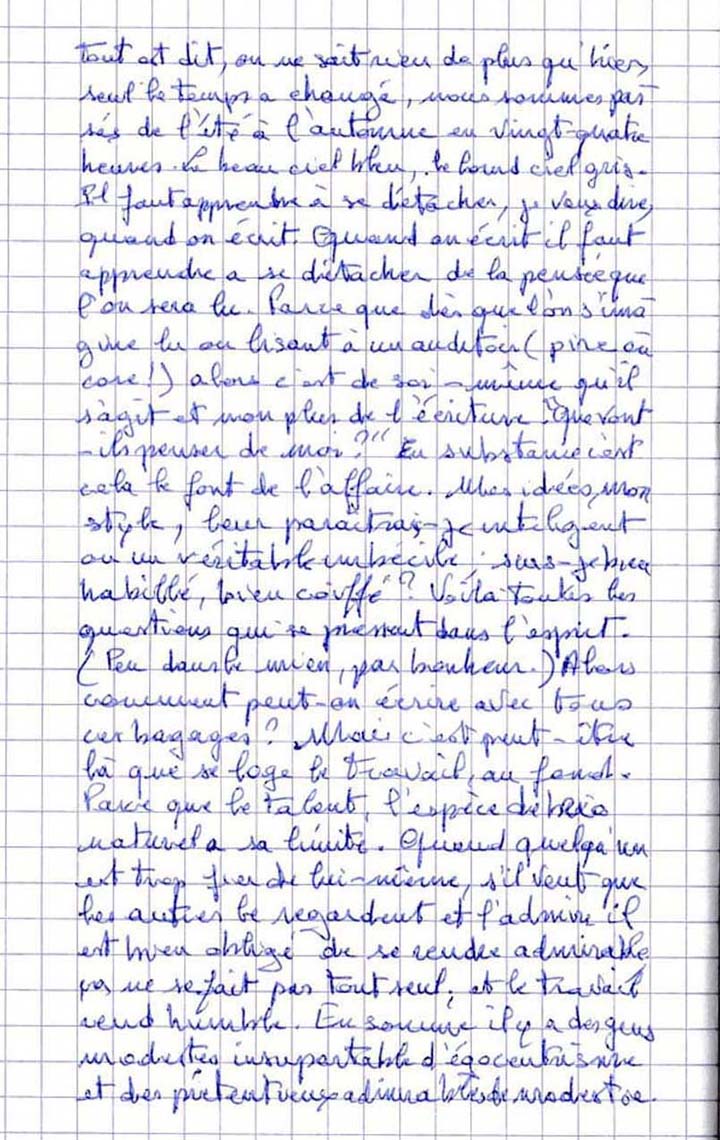 Tout est dit, on ne sait rien de plus qu'hier,
seul le temps a changé, nous sommes pas
sés de l'été à l'automne en vingt-quatre
heures. Le beau ciel bleu, le lourd ciel gris.
Il faut apprendre à se détacher, je veux dire,
quand on écrit. Quand on écrit il faut
apprendre a se détacher de la pensée que
l'on sera lu. Parce que dès que l'on s'ima
gine lu ou lisant à un auditoir (pire en
core!) alors c'est de soi-même qu'il
s'agit et non plus de l'écriture. "Que vont
-ils penser de moi?" En substance c'est
cela le font de l'affaire. Mes idées, mon
style, leur paraîtrai-je inteligent
ou un véritable imbécile, suis-je bien
habillé, bien coiffé? Voilà toutes les
questions qui se pressent dans l'esprit.
(Peu dans le mien, par bonheur.) Alors
comment peut-on écrire avec tous
ces bagages? Mais c'est peut-être
là que se loge le travail, au fond.
Parce que le talent, l'espèce de brio
naturel a sa limite. Quand quelqu'un
est trop fier de lui-même, s'il veut que
les autres le regardent et l'admire il
est bien obligé de se rendre admirable,
ça ne se fait pas tout seul, et le travail
rend humble. En somme il y a des gens
modestes insuportable d'égocentrisme
et des prétentieux admirables de modestie.